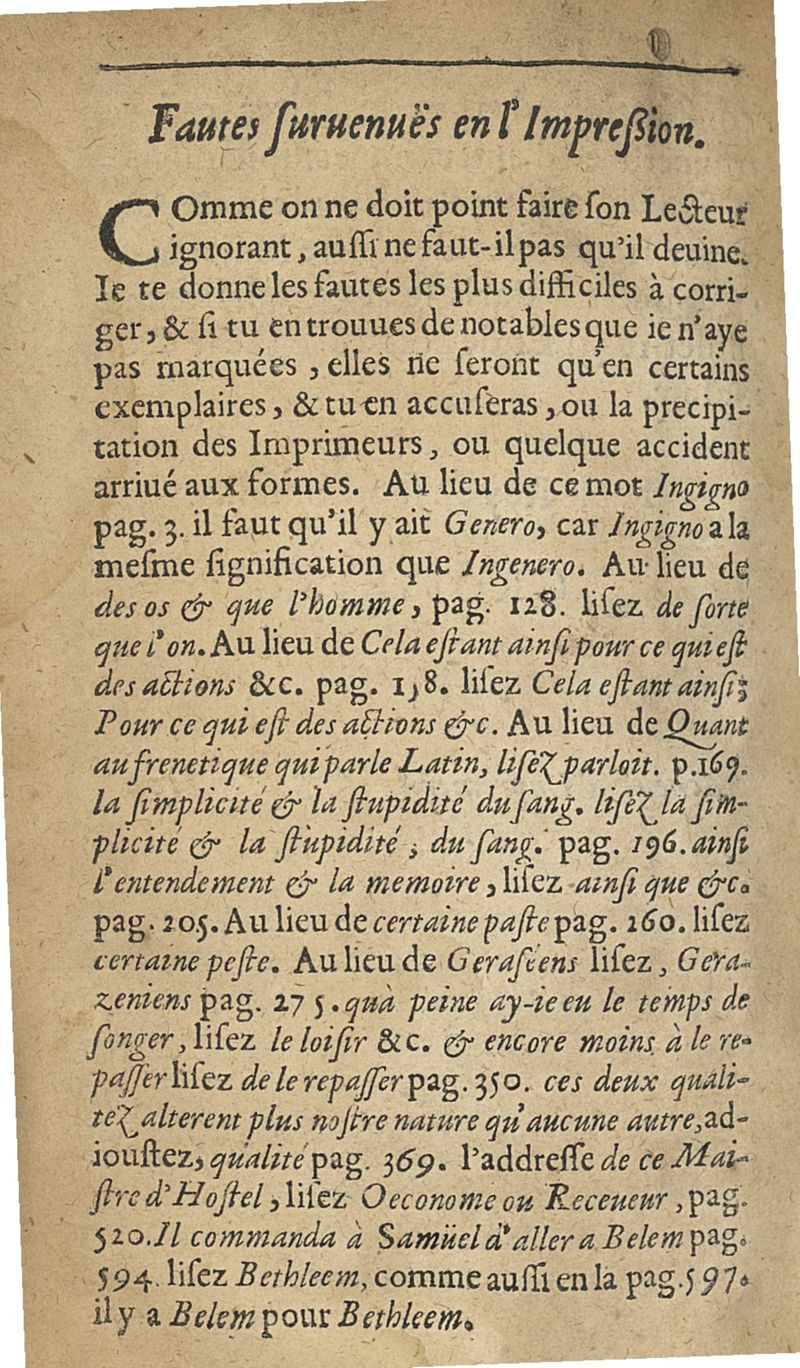 Fautes ſuruenuës en l'Impreßion.
COmme on ne doit point faire ſon Lecteur
ignorant, auſſi ne faut-il pas qu'il deuine.
Ie te donne les fautes les plus difficiles à corri-
ger, & ſi tu en trouues de notables que ie n'aye
pas marquées, elles ne ſeront qu'en certains
exemplaires, & tu en accuſeras, ou la precipi-
tation des Imprimeurs, ou quelque accident
arriué aux formes. Au lieu de ce mot Ingigno
pag. 3. il faut qu'il y ait Genero, car Ingigno a la
meſme ſignification que Ingenero. Au lieu de
des os & que l'homme, pag. 128. liſez de ſorte
que l'on. Au lieu de Cela eſtant ainſi pour ce qui eſt
des actions &c. pag. 1 8. liſez Cela eſtant ainſi;
Pour ce qui eſt des actions &c. Au lieu de Quant
au frenetique qui parle Latin, liſez parloit. p.169.
la ſimplicité & la ſtupidité du ſang. liſez la ſim-
plicité & la ſtupidité; du ſang. pag. 196. ainſi
l'entendement & la memoire, liſez ainſi que &c.
pag. 205. Au lieu de certaine paſte pag. 260. liſez
certaine peſte. Au lieu de Geraſéens liſez, Gera-
zeniens pag. 275. quà peine ay-ie eu le temps de
ſonger, liſez le loiſir &c. & encore moins à le re-
paſſer liſez de le repaſſer pag. 350. ces deux quali-
tez alterent plus noſtre nature qu'aucune autre, ad-
iouſtez, qualité pag. 369. l'addreſſe de ce Mai-
ſtre d'Hoſtel, liſez Oeconome ou Receueur, pag.
520. Il commanda à Samüel d'aller a Belem pag.
594. liſez Bethleem, comme auſſi en la pag. 597.
il y a Belem pour Bethleem.